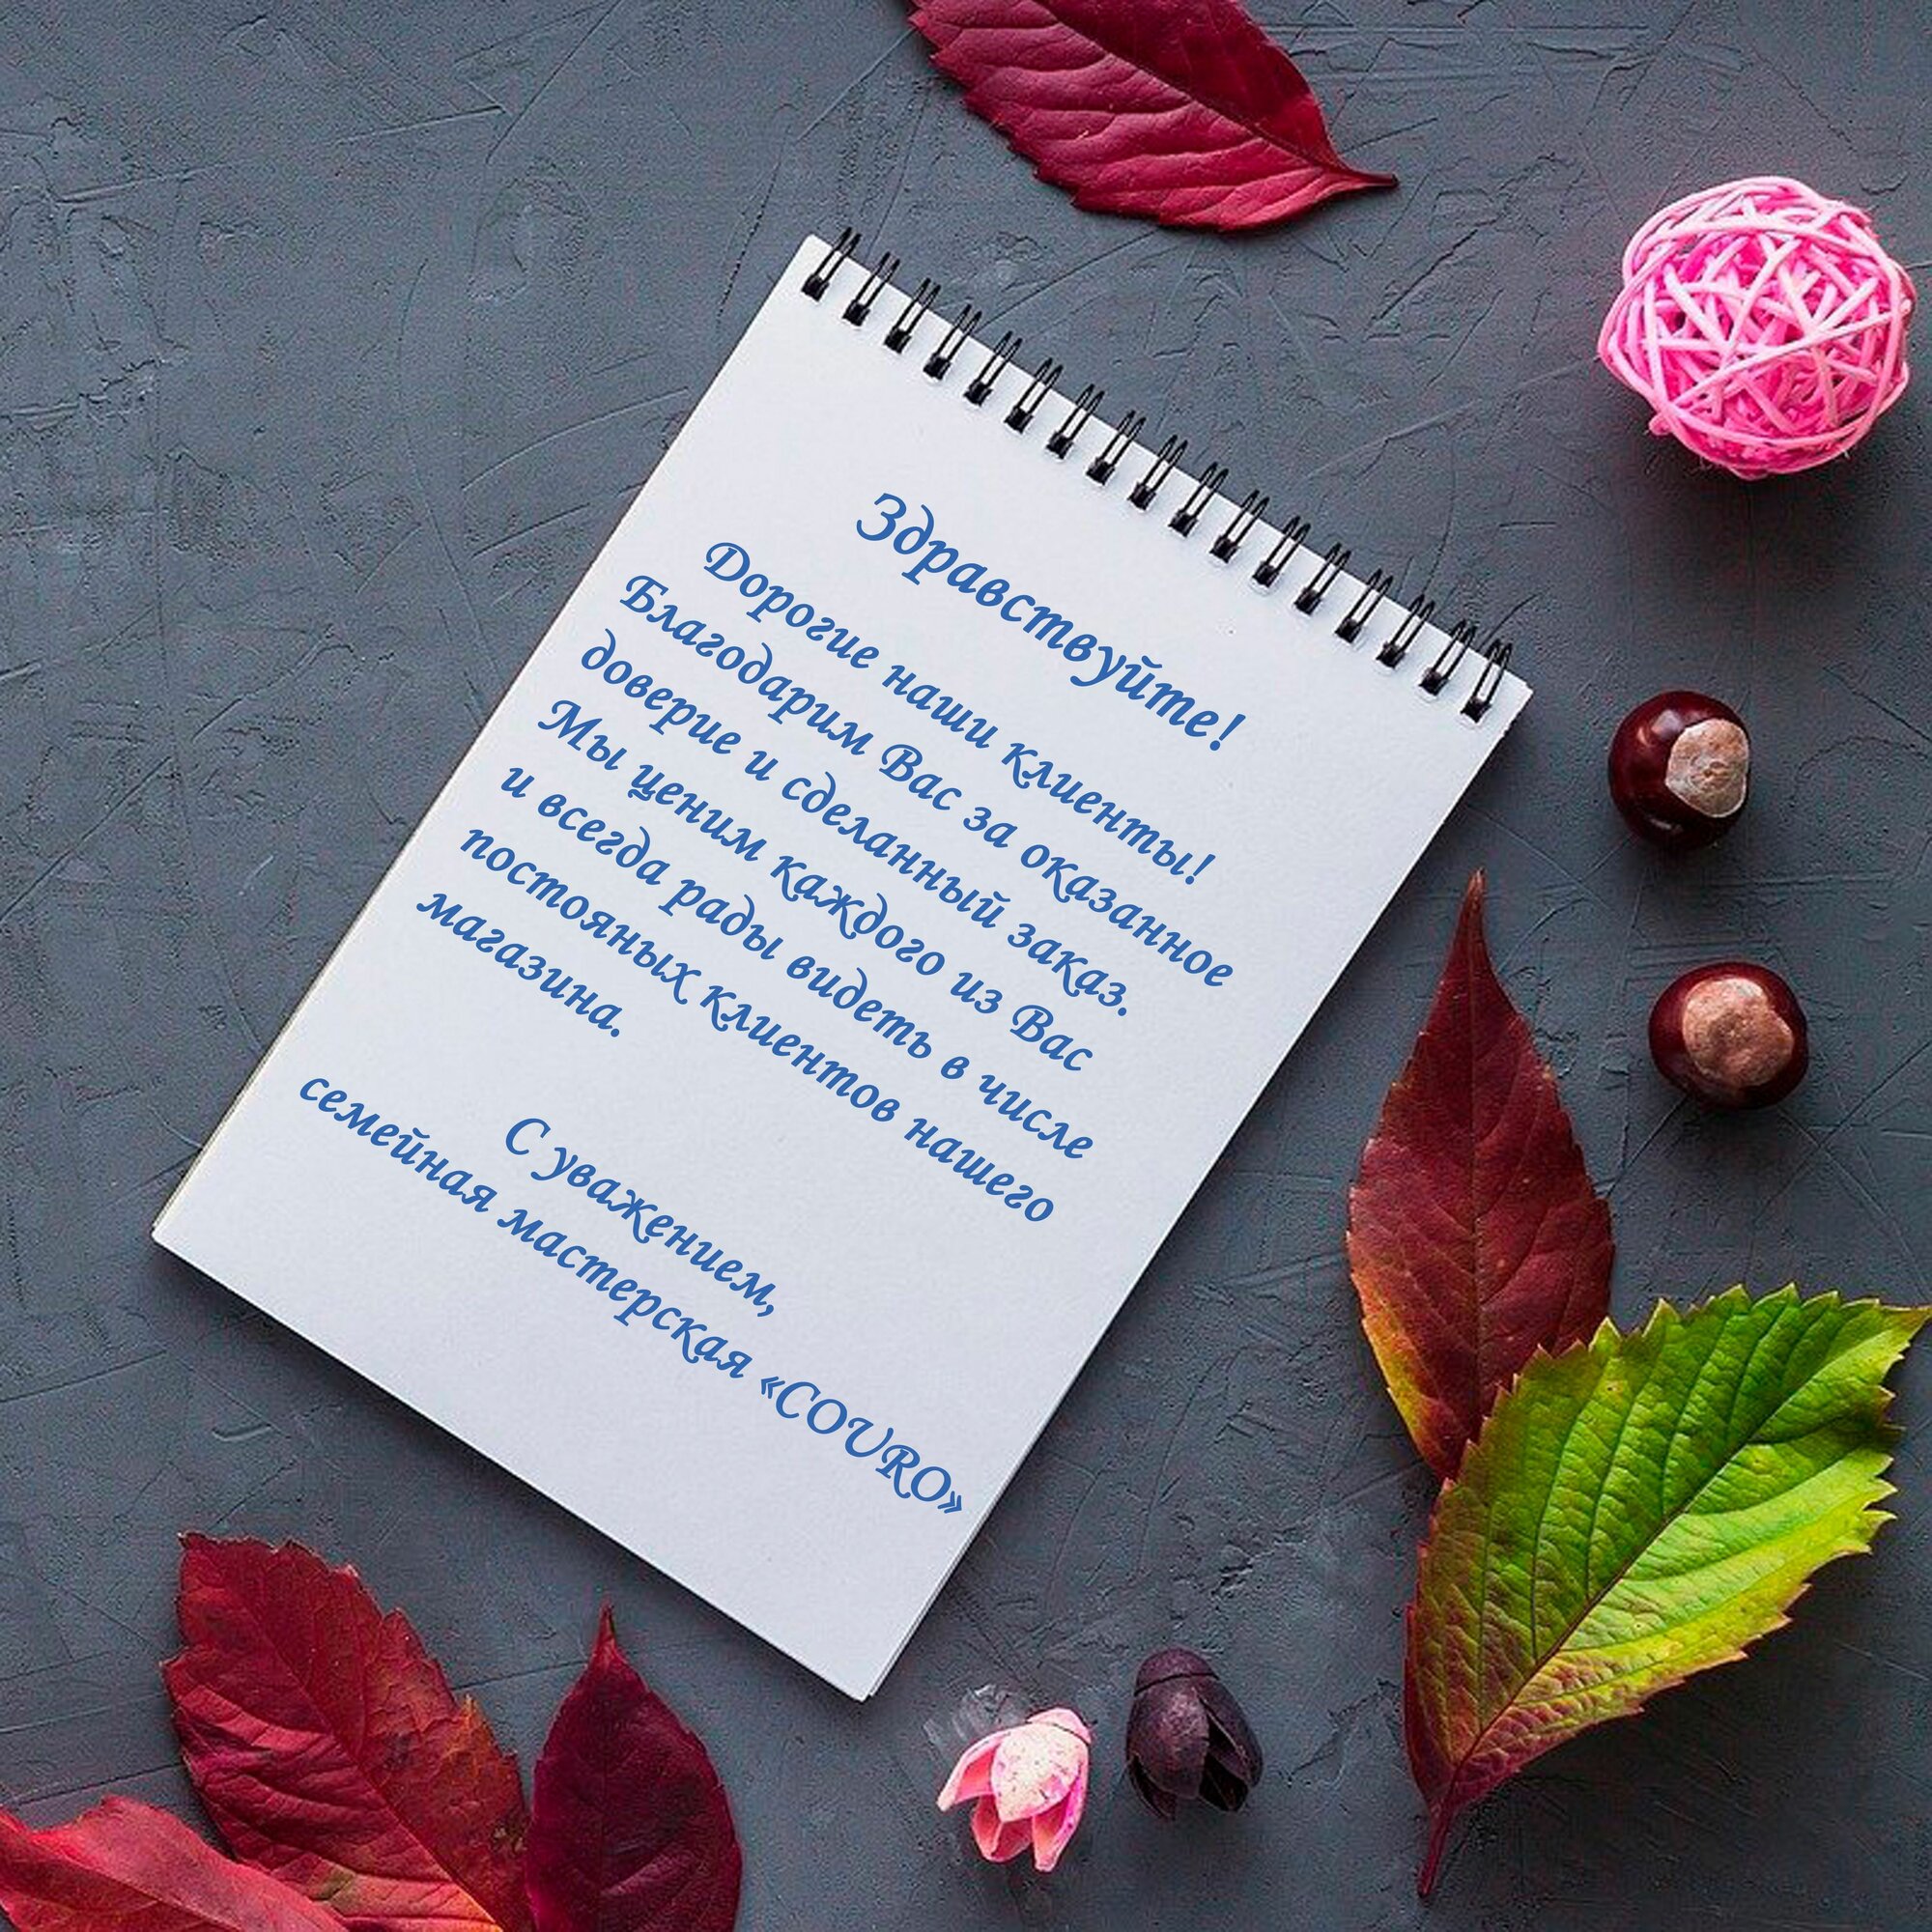 Здравствуйте!
Дорогие наши клиенты!
Благодарим Вас за оказанное
доверие и сделанный заказ.
Мы ценим каждого из Вас
и всегда рады видеть в числе
постояных клиентов нашего
магазина.
С уважением,
семейная мастерская «COURO»